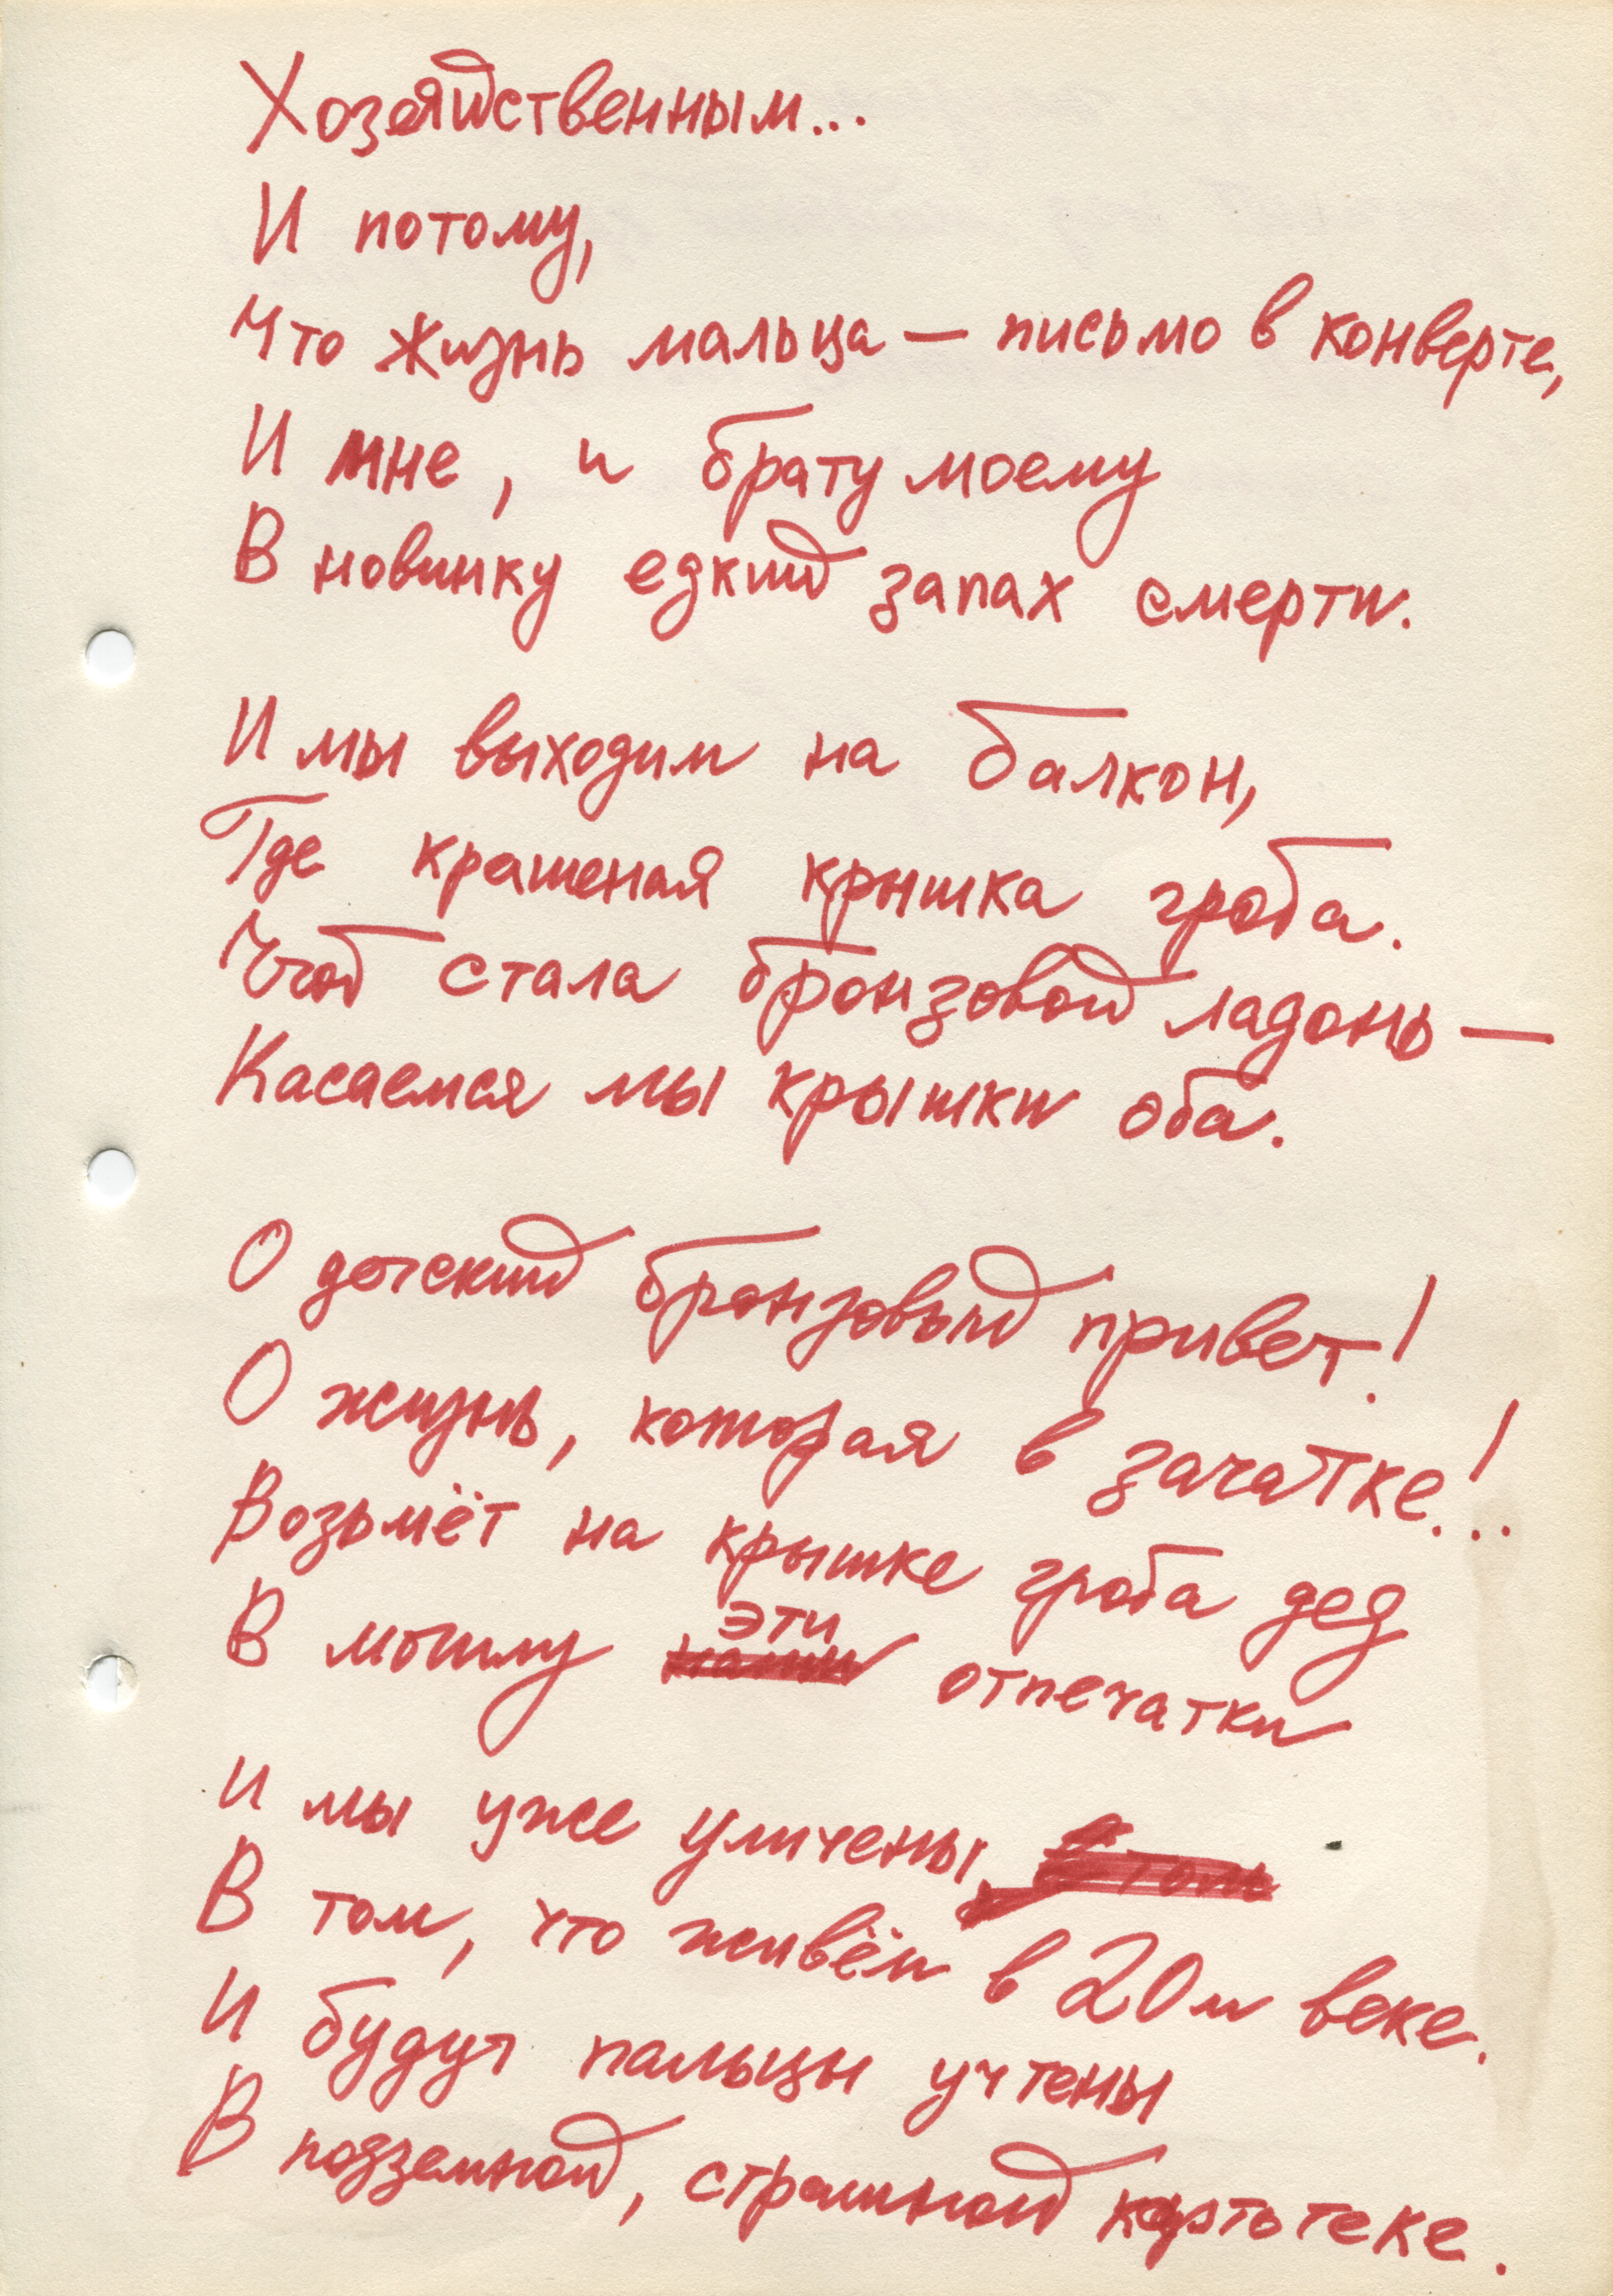 Хозяйственным...
И потому,
Что жизнь мальца — письмо в конверте,
И мне, и брату моему
В новинку едкий запах смерти.
И мы выходим на балкон,
Где крашеная крышка гроба.
Чтоб стала бронзовой ладонь —
Касаемся мы крышки оба.
О детский бронзовый привет!
О жизнь, которая в зачатке!..
Возьмёт на крышке гроба дед
В могилу эти отпечатки
И мы уже уличены,
В том, что живём в 20м веке.
И будут пальцы учтены
В подземной, страшной картотеке.